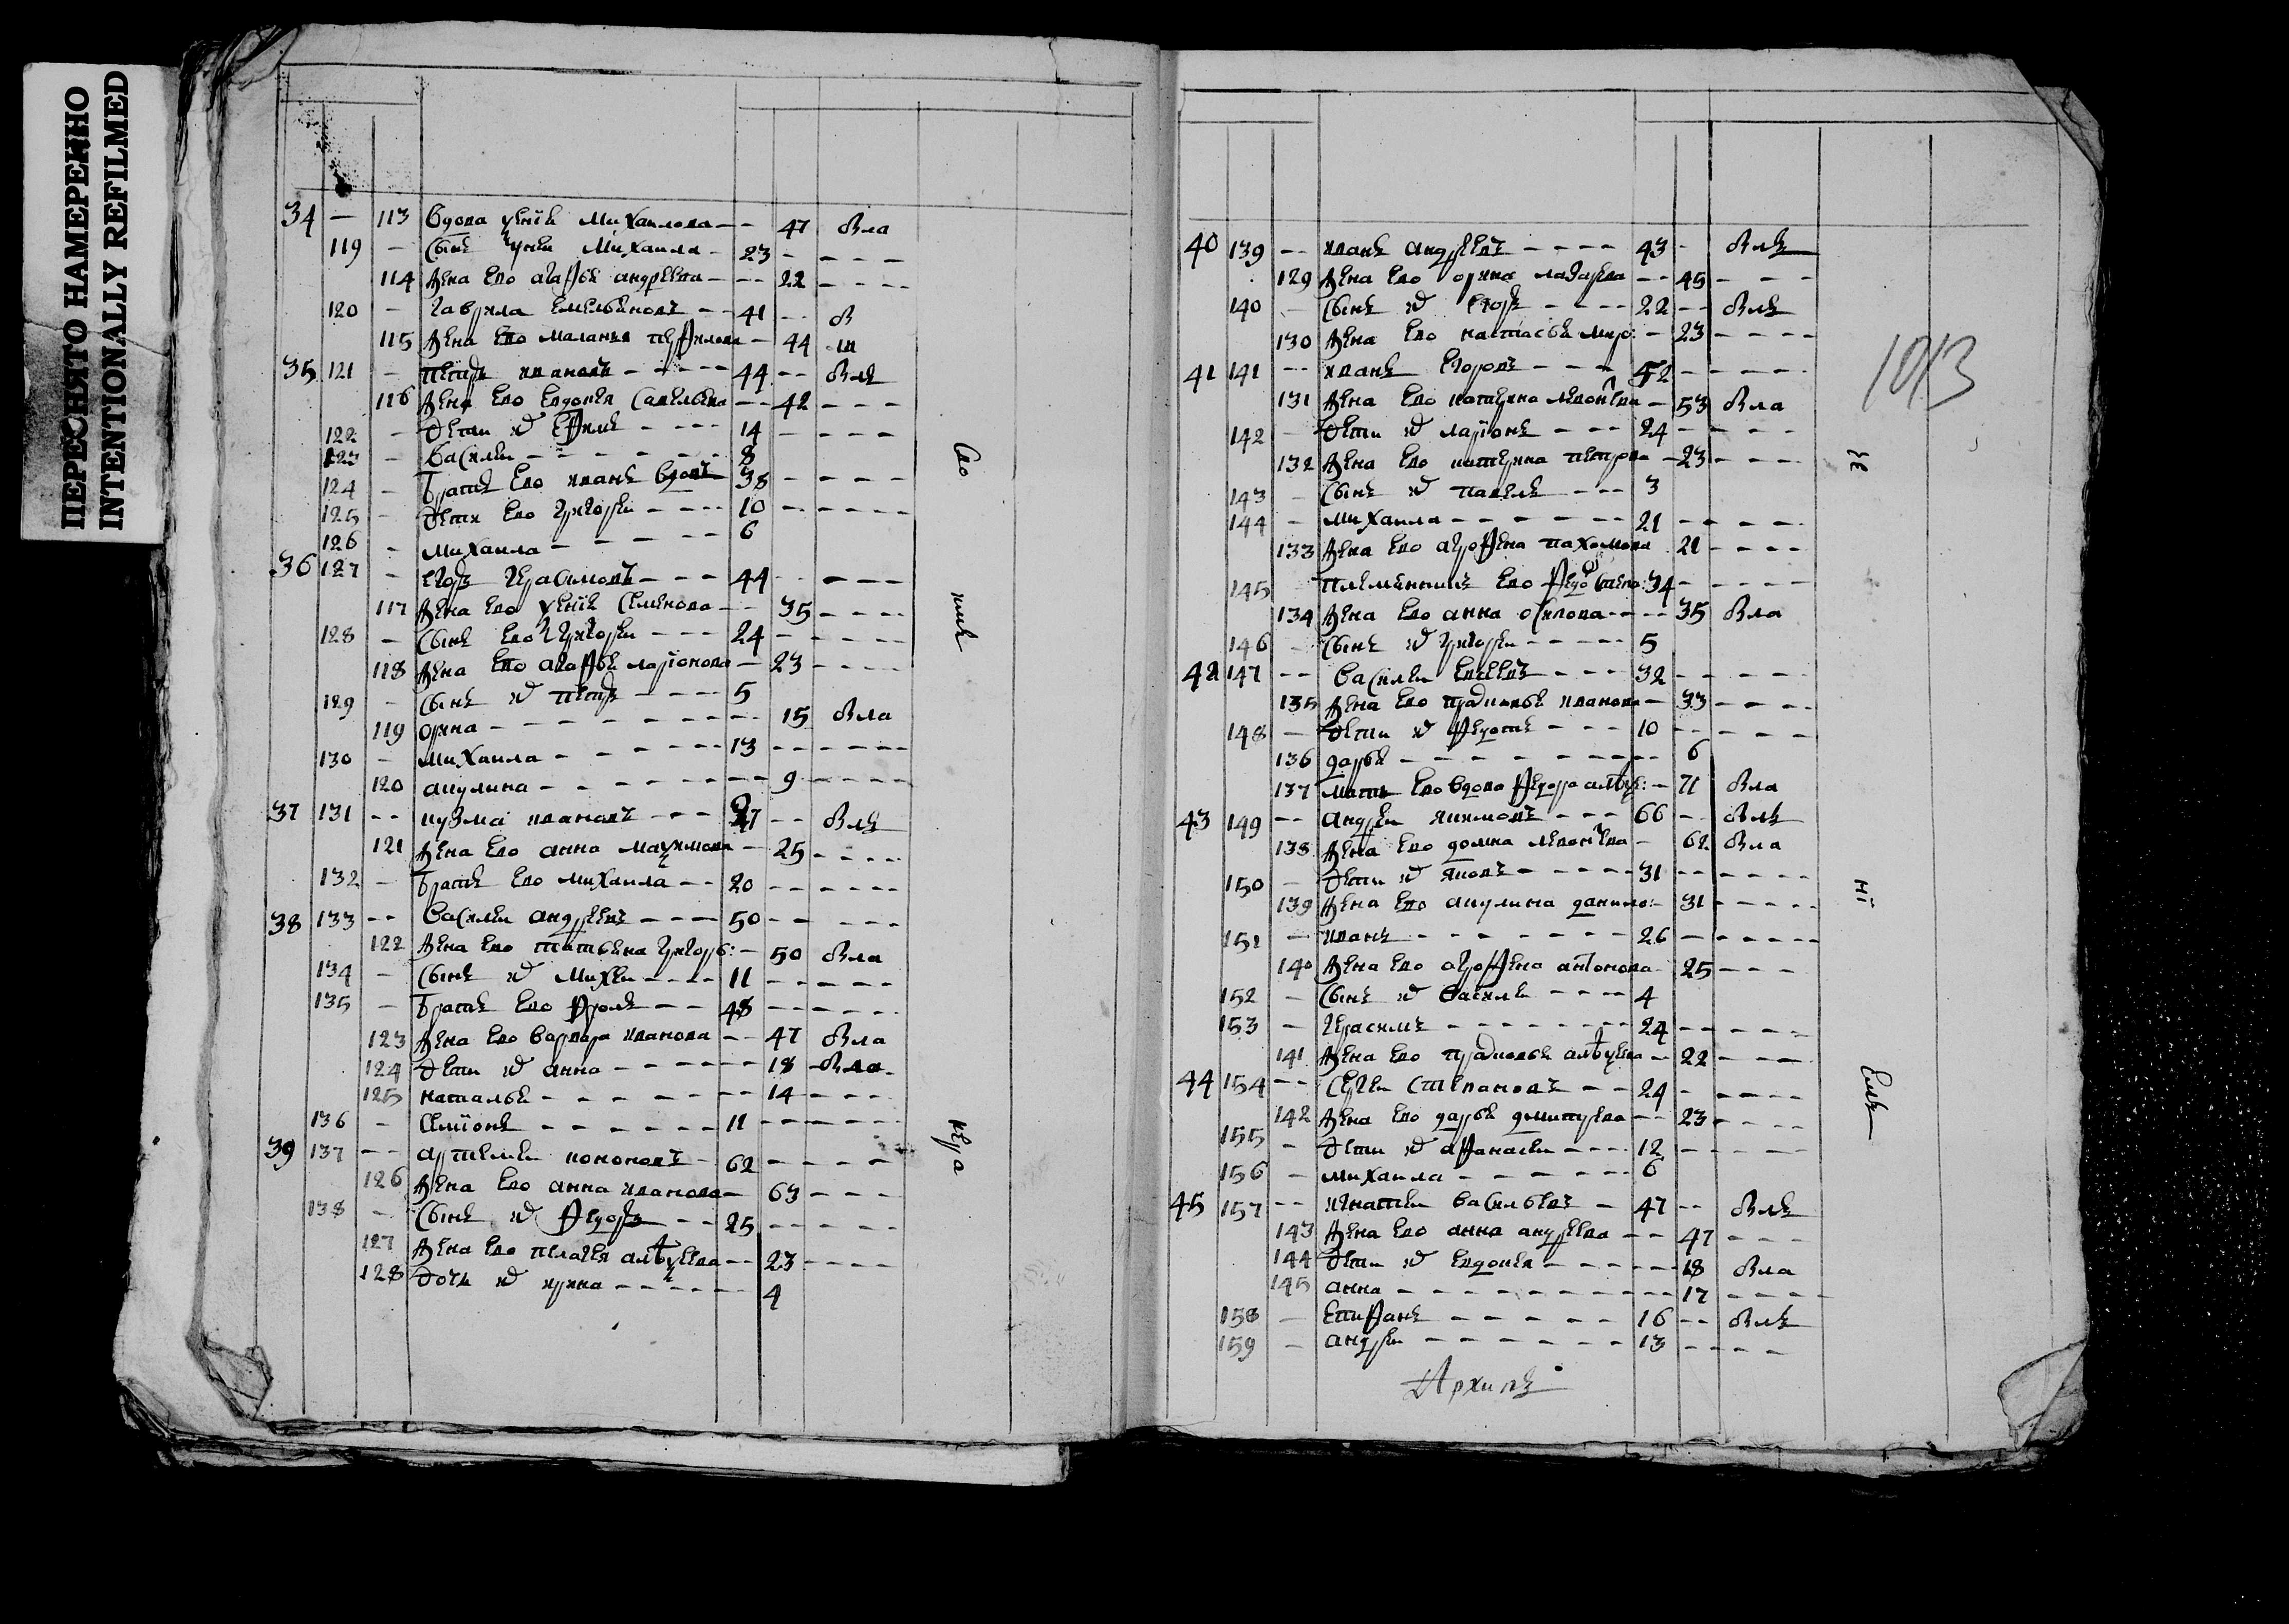 ПЕРЕСНЯТО НАМЕРЕННО
INTENTIONALLY REFILMED
34 — 113 вдова ѯенїя михаилова — — 47 вла
119 — сынъ михаила — 23 — — — —
114 жена ево агафья андреева — — — 22 — — — —
120 — гаврила емельяновъ — — 41 — —
115 жена ево маланья перфилова — 44
35 121 — петръ ивановъ — — — — — 44 — — влъ
116 жена ево евдокия савельева — — 42 — — —
122 — дети ихъ ефимъ — — — 14 — — — —
123 — василеи — — — — — — — 8
124 — братъ ево иванъ вдовъ 38 — — — —
125 — дети ево григореи — — — — 10 — — — — —
126 — михаила — — — — — — 6
36 127 — егоръ герасимовъ — — — 44 — — — — —
117 жена ево ѯенїя семенова — — 35 — — — —
128 — сынъ ево григореи — — — 24 — — — — —
118 жена ево агафья ларїонова — 23 — — — —
129 — сынъ ихъ петръ — — — — 5
119 орина — — — — — — — — 15 вла
130 — михаила — — — — — — 13 — — — — — —
120 акулина — — — — — — — — 9 — — — — —
37 131 — — кузма ивановъ — — — 27 — — влъ
121 жена ево анна маѯимова — 25 — — — —
132 — братъ ево михаила — — 20 — — — — — —
38 133 — — василеи андреевъ — — — 50 — — — — —
122 жена ево татьяна григорь: — 50 вла
134 — сынъ ихъ михеи — — — — 11 — — — — —
135 — братъ ево фролъ — — 48 — — — — —
123 жена ево варвара иванова — — 47 вла
124 дети ихъ анна — — — — — — 18 вла
125 наталья — — — — — — — — 14 — — — —
136 — семїонъ — — — — — — 11 — — — — — —
39 137 — — артемеи кононовъ — 62 — — — — —
126 жена ево анна иванова — 63 — — —
138 — сынъ ихъ федоръ — — 25 — — — — —
127 жена ево пелагея алѣѯеева — — 23 — — — —
128 дочь ихъ ирина — — — — — — 4
40 139 — — иванъ андреевъ — — — — 43 — влъ
129 жена ево орина лазарева — — 45 — — —
140 — сынъ ихъ егоръ — — — — 22 — — влъ
130 жена ево настасья миро: — 23 — — — —
41 141 — — иванъ егоровъ — — — — 52 — — — — —
131 жена ево катерина левонтьева — 53 вла
142 — дети ихъ ларїонъ — — — 24 — — — —
132 жена ево катерина петрова — 23 — — — —
143 — сынъ ихъ павелъ — — — 3
144 — михаила — — — — — — — 21 — — — — —
133 жена ево агрофена пахомова 21 — — — —
145 племянникъ ево федо степа: 34 — — — — —
134 жена ево анна осипова — — — — 35 вла
146 — сынъ ихъ григореи — — — — — 5
42 147 — — василеи евсеевъ — — — — 32 — — — — —
135 жена ево прасковья иванова — 33 — — — —
148 — дети ихъ федотъ — — — 10 — — — — —
136 дарья — — — — — — — — — — 6
137 мать ево вдова федора алѣѯ: — 71 вла
43 149 — — андреи якимовъ — — — 66 — — влъ
138 жена ево домна левонтьева — 62 вла
150 — дети ихъ яковъ — — — — — 31 — — — — — —
139 жена ево акулина данило: — 31 — — — — —
151 — иванъ — — — — — — — 26 — — — — — —
140 жена ево агрофена антонова 25 — — —
152 — сынъ ихъ василеи — — — — 4
153 — герасимъ — — — — — — — — 24 — — — — — —
141 жена ево прасковья алѣѯеева — 22 — — —
44 154 — — сергеи степановъ — — 24 — — — — —
142 жена ево дарья дмитрева — — 23 — — — —
155 — дети ихъ афанасеи — — — — 12 — — — — —
156 — михаила — — — — — — — 6
45 157 — — игнатеи васильевъ — 47 — — влъ
143 жена ево анна андреева — — 47 — — —
144 дети ихъ евдокия — — — — — — 18 вла
145 анна — — — — — — — — — — 17 — — — —
158 — епифанъ — — — — — 16 — — влъ
159 — андреи — — — — — — — 13 — — — —
Архипъ
1013